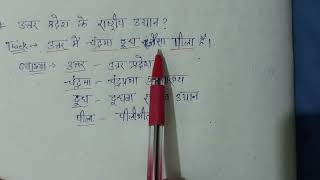 * उत्तर प्रदेश के राष्ट्रीय उद्यान?
Trick → उत्तर में चंद्रमा दूध जैसा पीला है।
व्याख्या → उत्तर - उत्तर प्रदेश
चंद्रमा - चंद्रप्रभा
दूध - दुधवा उद्यान
पीला - पीलीभीत